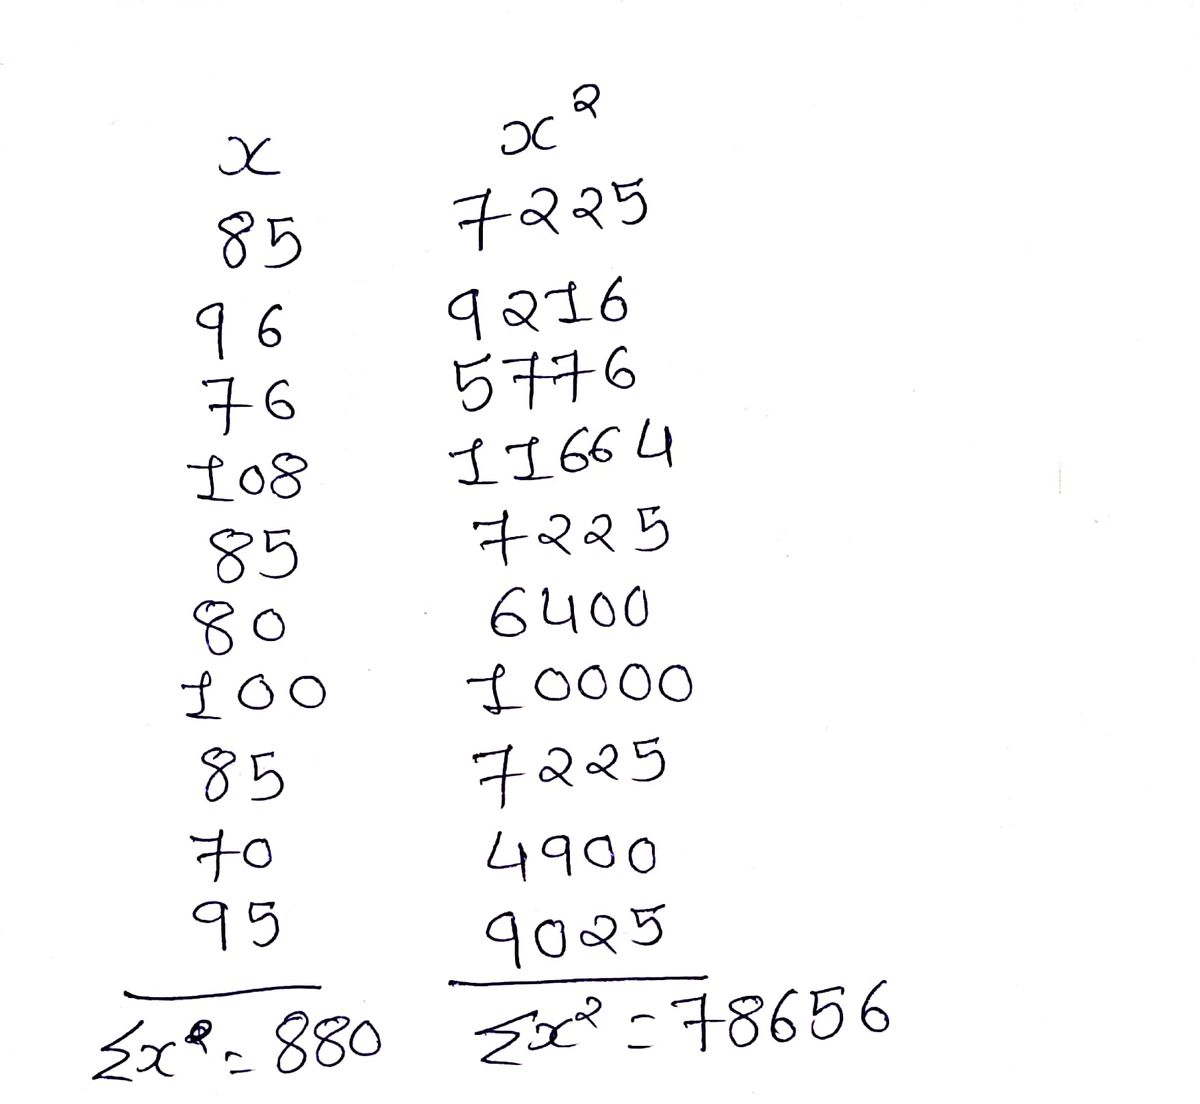 x x²
85 7225
96 9216
76 5776
108 11664
85 7225
80 6400
100 10000
85 7225
70 4900
95 9025
Σx² = 880 Σx² = 78656